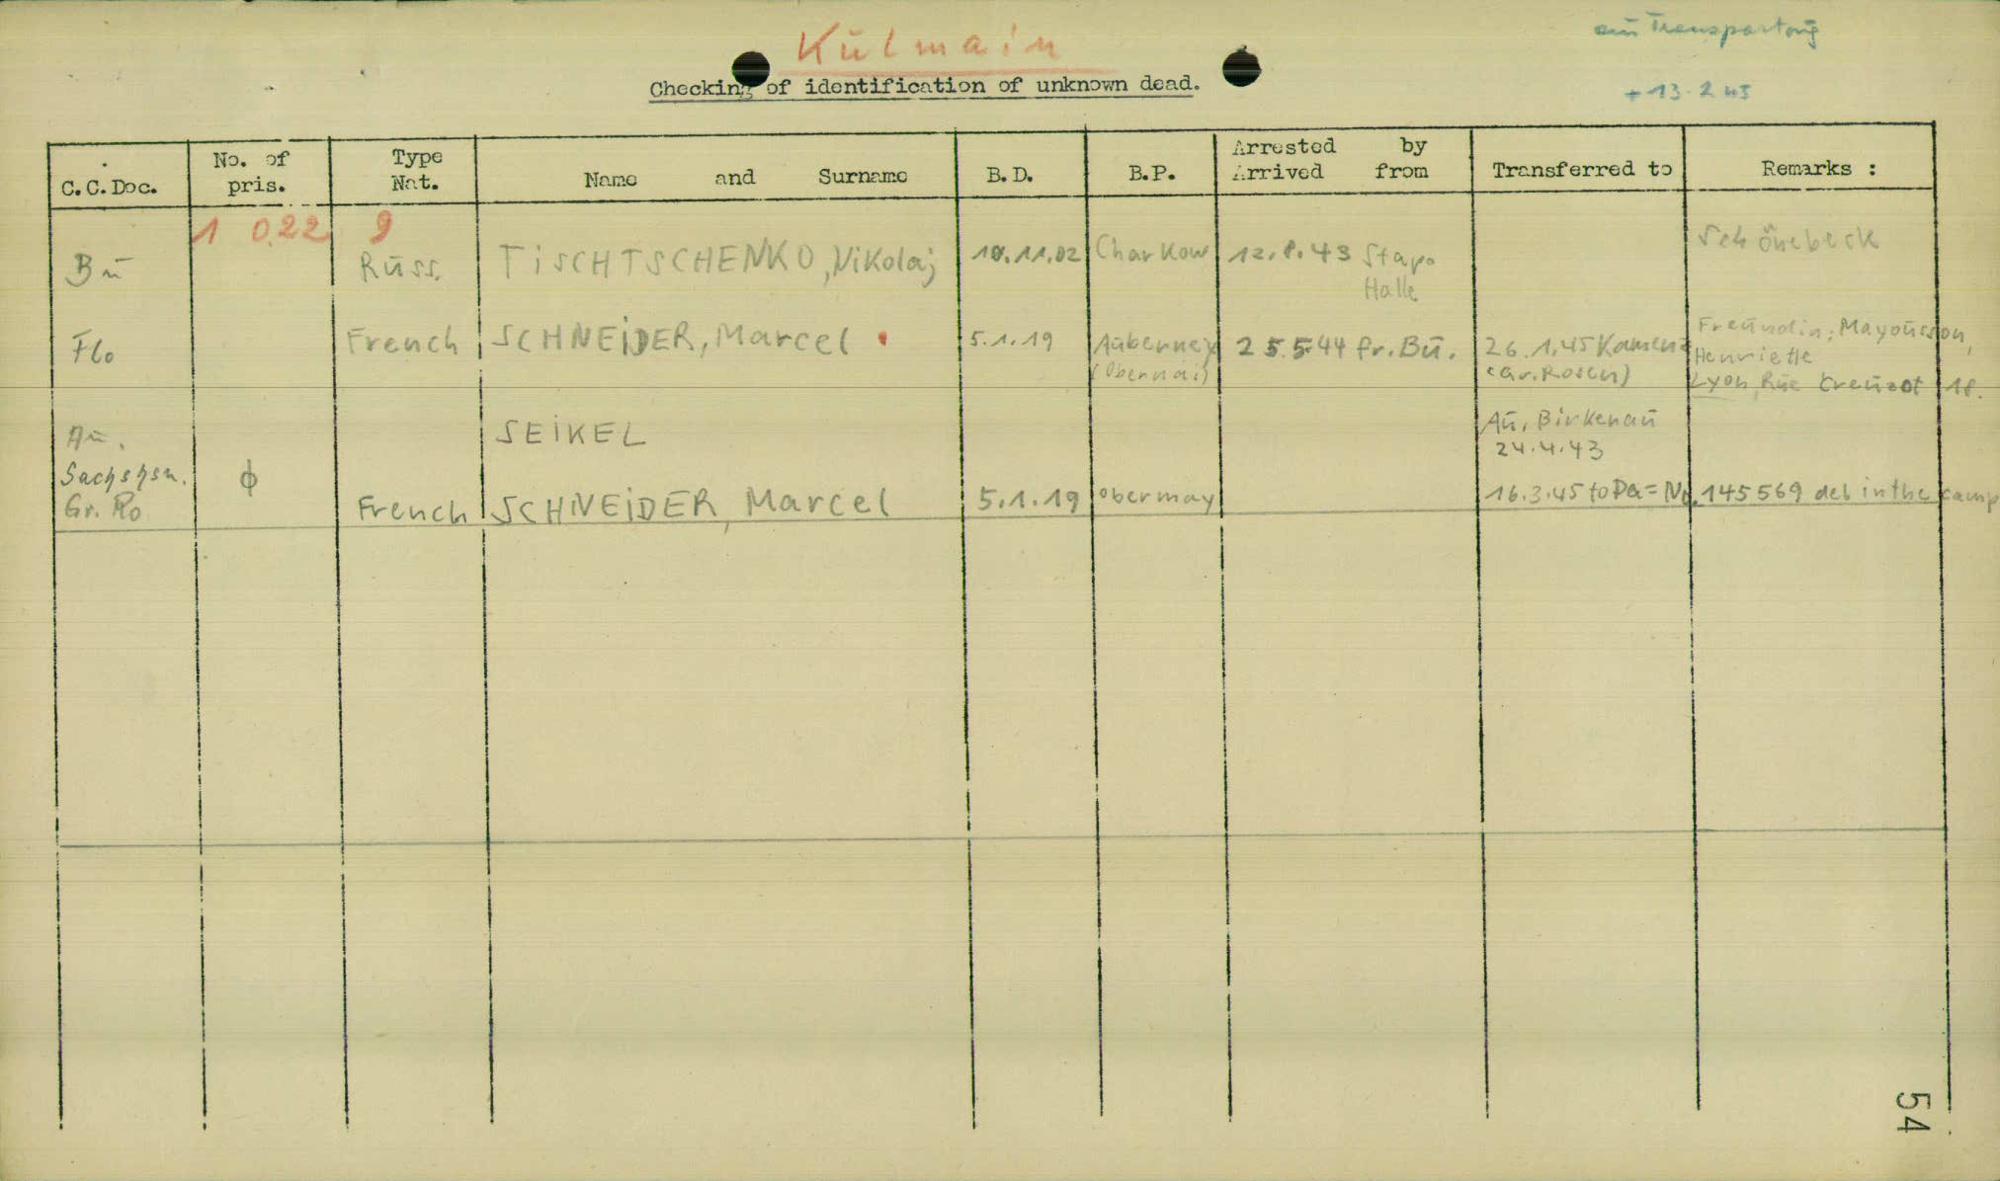 Kulmain
am Transportzug
+ 13.2.45
Checking of identification of unknown dead.
C.C.Doc. No. of pris. Type Nat. Name and Surname B.D. B.P. Arrested by Arrived from Transferred to Remarks :
1 022 9
Bū Rūss. TISCHTSCHENKO, Nikolaj 10.11.02 Charkow 12.8.43 Stapo Schönebeck
Halle
Flo French SCHNEIDER, Marcel 5.1.19 Auberney 25.5.44 fr. Bū. 26.1.45 Kamenz Freundin: Mayousson,
(Obernai) (Gr. Rosen) Henriette
Lyon, Rūe Creuzot 18.
Au. SEIKEL Aū, Birkenaū
24.4.43
Sachshsn. ϕ
Gr. Ro French SCHNEIDER, Marcel 5.1.19 Obermay 16.3.45 to Da = No. 145569 deb in the camp
54